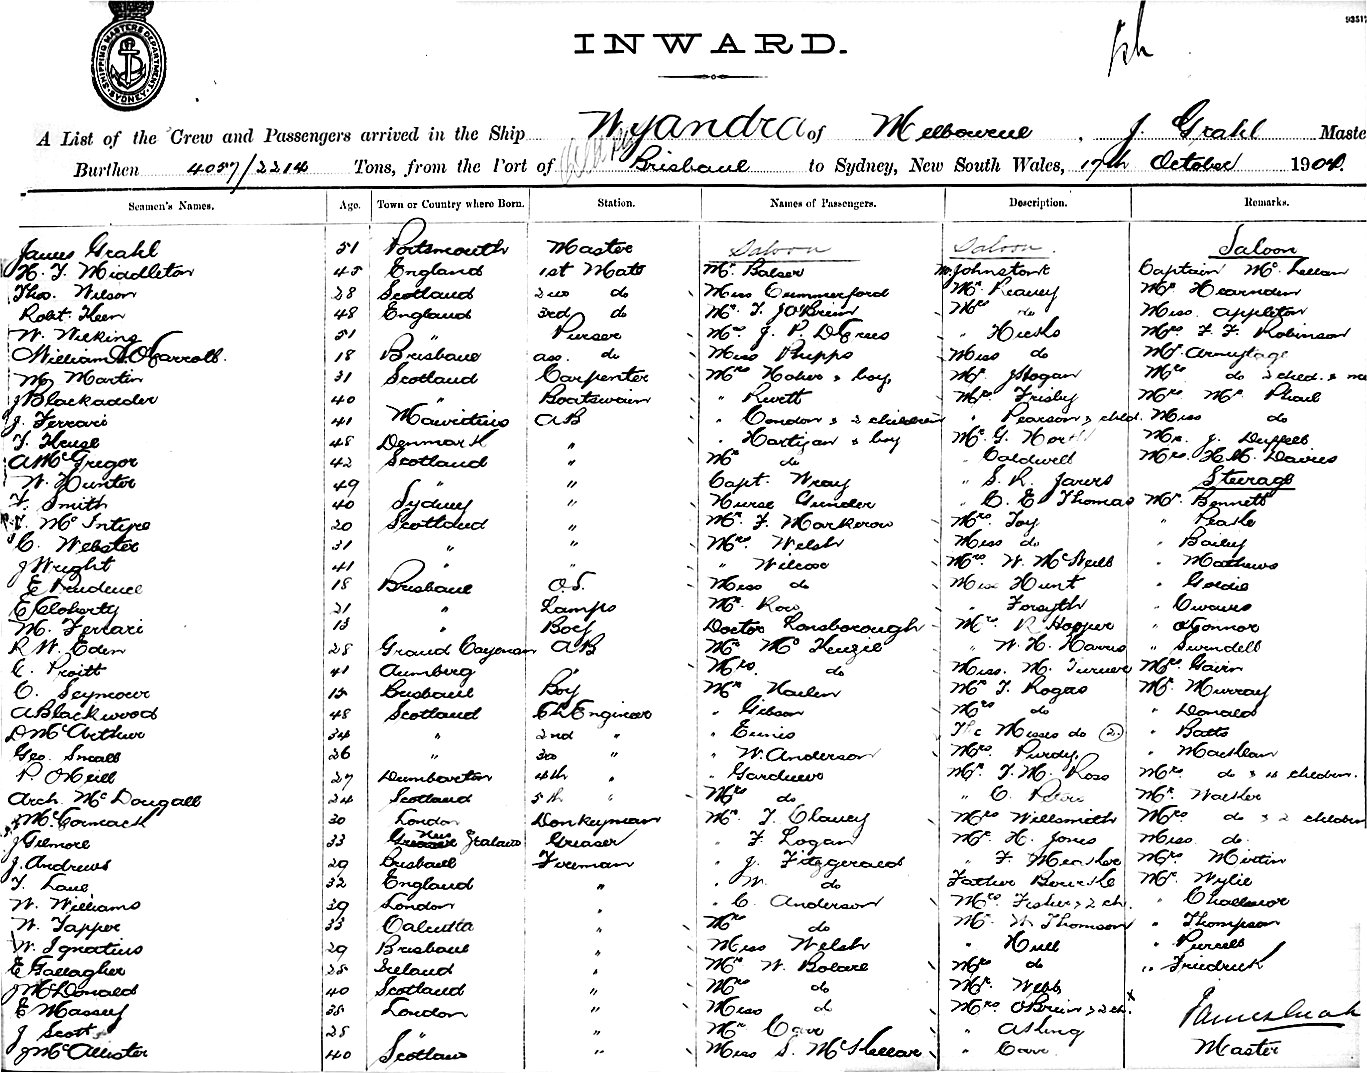 93517
SHIPPING MASTERS DEPARTMENT SYDNEY
INWARD.
A List of the Crew and Passengers arrived in the Ship Wyandra of Melbourne, J. Grahl Maste
Burthen 4057/2214 Tons, from the Port of Brisbane to Sydney, New South Wales, 17th October 190
Seamen's Names. Age. Town or Country where Born. Station. Names of Passengers. Description. Remarks.
James Grahl 51 Portsmouth Master Saloon Saloon Saloon
H. T. Middleton 45 England 1st Mate Mr. Balser Johnstone Captain Mc Lellan
Thos. Wilson 28 Scotland 2nd do Miss Cummerford Mr. Reaney Mr Hearnden
Robt Keen 48 England 3rd do Mr. T. JO'Brien Mrs do Miss Appleton
W. Wilking 51 " Purser Mr. J. P. " Hicks Mrs F. F. Robinson
William O'Carroll. 18 Brisbane ass. do Miss Phipps Miss do Mr Armytage
M Martin 31 Scotland Carpenter Mrs & boy, Mr. J Hogan Mrs do 2 child. &
J Blackadder 40 " Boatswain " Rivett Mrs Frisby Mrs Mc Phail
J. Ferrari 41 Mauritius AB " Condon & 2 children " Pearson & child. Miss do
T. 48 Denmark " " Hartigan & boy Mr. G. North Mr. J. Duffell
A McGregor 42 Scotland " Mr do " Caldwell Mrs. H. M. Davies
W. Hunter 49 " " Capt. Wray " S. R. Steerage
F. Smith 40 Sydney " Nurse Gunder " C. E Thomas Mr. Bennett
T. Mc Intyre 20 Scotland " Mr. F. Mrs. Toy " Peake
C. Webster 31 " " Mrs. Welsh Miss do " Bailey
J Wright 41 " " " Wilcox Mrs. W. McNeill " Mathews
E Prudence 18 Brisbane O.S. Miss do Miss Hunt " Goldie
E Cloherty 21 " Lamps Mr. Row " Forsyth "
M. Ferrari 13 " Boy Doctor Lonsborough Mrs R Hopper " O'Connor
R W. Eden 28 Grand Cayman AB Mr Mc Kenzie " W. H. Harris " Swindell
C. 41 " Mrs. do Miss. M. Turner Mrs. Gavin
C. Seymour 15 Brisbane Boy Mr Mr T. Rogas Mr. Murray
A Blackwood 48 Scotland Ch Engineer " Gibson Mrs do " Donald
D McArthur 34 " 2nd " " Ennis The Misses do (2) " Batts
Geo. Small 26 " 3rd " " W. Anderson Mrs. Purdy, "
P. O'Neill 27 Dumbarton 4th " " Gardner Mr. T. M. Ross Mrs do & children.
Arch. Mc Dougall 24 Scotland 5th " Mrs do " C. Mr. Walker
J McCormack 30 London Donkeyman Mr. T. Clancy Mrs Willsmith Mrs do & 2 children
J Gilmore 33 New Zealand Greaser " F. Logan Mr H. Jones Miss do.
J. Andrews 29 Brisbane Fireman " J. Fitzgerald " F. Mrs
T. Lane 32 England " " W. do Father Bourke Mr. Wylie
W. Williams 39 London " " C. Anderson Mrs. Fisher & 2 ch. "
W. Tapper 33 Calcutta " Mrs do Mr. W. Thomson " Thompson
W. Ignatius 29 Brisbane " Miss Welsh " Hull " Purcell
E Gallagher 28 Ireland " Mr W. Mrs do " Friedrich
J McDonald 40 Scotland " Mrs do Mr. Webb
E Massey 38 London " Miss do Mrs O'Brien & 2 ch.
J Scott 28 " " Mr Carr "
J McAllister 40 Scotland " Miss S. McKellar " Carr Master